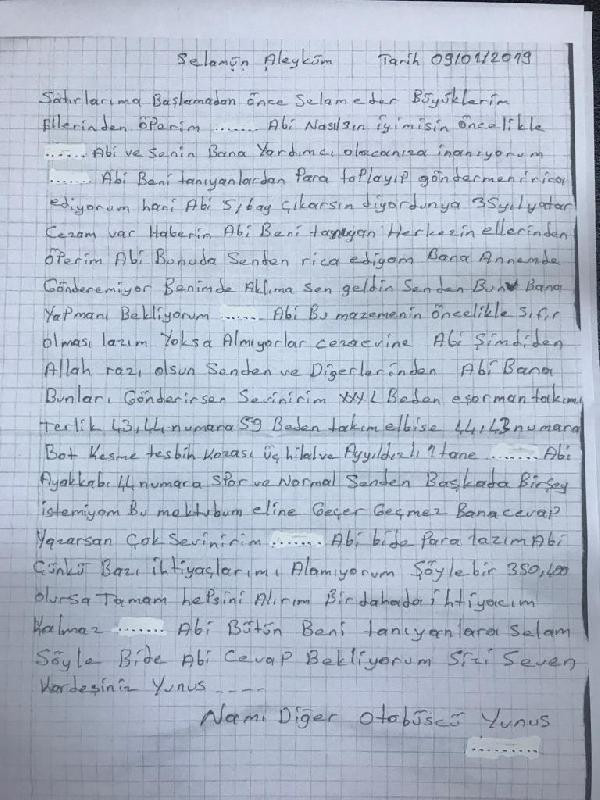 Selamün Aleyküm Tarih 09/01/2019
Satırlarıma Başlamadan önce Selam eder Büyüklerim
Ellerinden öperim ....... Abi Nasılsın iyimisin öncelikle
...... Abi ve Senin Bana Yardımcı olacanıza inanıyorum
...... Abi Beni tanıyanlardan Para toplayıp göndermeni rica
ediyorum hani Abi 5,6ay Çıkarsın diyordunya 35yıl yatar
Cezam var Haberin Abi Beni tanıyan Herkezin ellerinden
öperim Abi Bunuda Senden rica ediyom Bana Annemde
Gönderemiyor Benimde Aklıma Sen geldin Senden Bunu Bana
Yapmanı Bekliyorum ...... Abi Bu mazemenin öncelikle Sıfır
olması lazım Yoksa Almıyorlar cezaevine Abi Şimdiden
Allah razı olsun Senden ve Diğerlerinden Abi Bana
Bunları Gönderirsen Sevinirim XXXL Beden eşorman takımı
Terlik 43,44 numara 59 Beden takım elbise 44,43 numara
Bot Kesme tesbih Kozası üç hilal ve Ayyıldızlı 1 tane ....... Abi
Ayakkabı 44 numara Spor ve Normal Senden Başkada Birşey
istemiyom Bu mektubum eline Geçer Geçmez Bana cevap
Yazarsan Çok Sevinirim ....... Abi bide Para lazım Abi
Çünkü Bazı ihtiyaçlarımı Alamıyorum Şöyle bir 350,400
olursa Tamam hepsini Alırım Bir dahada ihtiyacım
Kalmaz ....... Abi Bütün Beni tanıyanlara Selam
Söyle Bide Abi Cevap Bekliyorum Sizi Seven
Kardeşiniz Yunus ----
Namı Diğer Otobüscü Yunus
..........